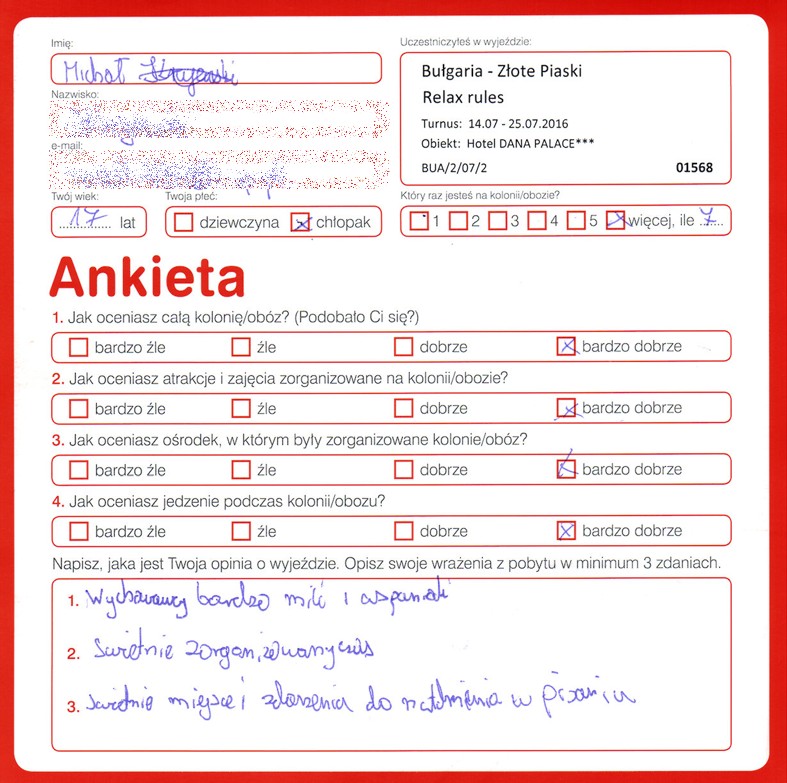 Imię:
Michał
Nazwisko:
e-mail:
Twój wiek:
17 lat
Twoja płeć:
dziewczyna chłopak
Uczestniczyłeś w wyjeździe:
Bułgaria - Złote Piaski
Relax rules
Turnus: 14.07 - 25.07.2016
Obiekt: Hotel DANA PALACE***
BUA/2/07/2 01568
Który raz jesteś na kolonii/obozie?
1 2 3 4 5 więcej, ile 7
Ankieta
1. Jak oceniasz całą kolonię/obóz? (Podobało Ci się?)
bardzo źle źle dobrze bardzo dobrze
2. Jak oceniasz atrakcje i zajęcia zorganizowane na kolonii/obozie?
bardzo źle źle dobrze bardzo dobrze
3. Jak oceniasz ośrodek, w którym były zorganizowane kolonie/obóz?
bardzo źle źle dobrze bardzo dobrze
4. Jak oceniasz jedzenie podczas kolonii/obozu?
bardzo źle źle dobrze bardzo dobrze
Napisz, jaka jest Twoja opinia o wyjeździe. Opisz swoje wrażenia z pobytu w minimum 3 zdaniach.
1. Wychowawcy bardzo mili i wspaniali
2. Świetnie zorganizowany czas
3. świetnie miejsce i zdarzenia do natchnienia w pisaniu